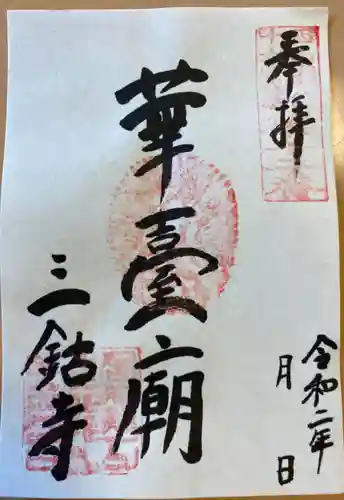 奉拝
令和二年
月 日
華臺廟
三鈷寺